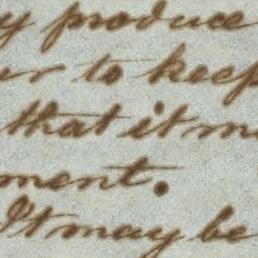 y produce
to keep
that it m
ment.
It may be